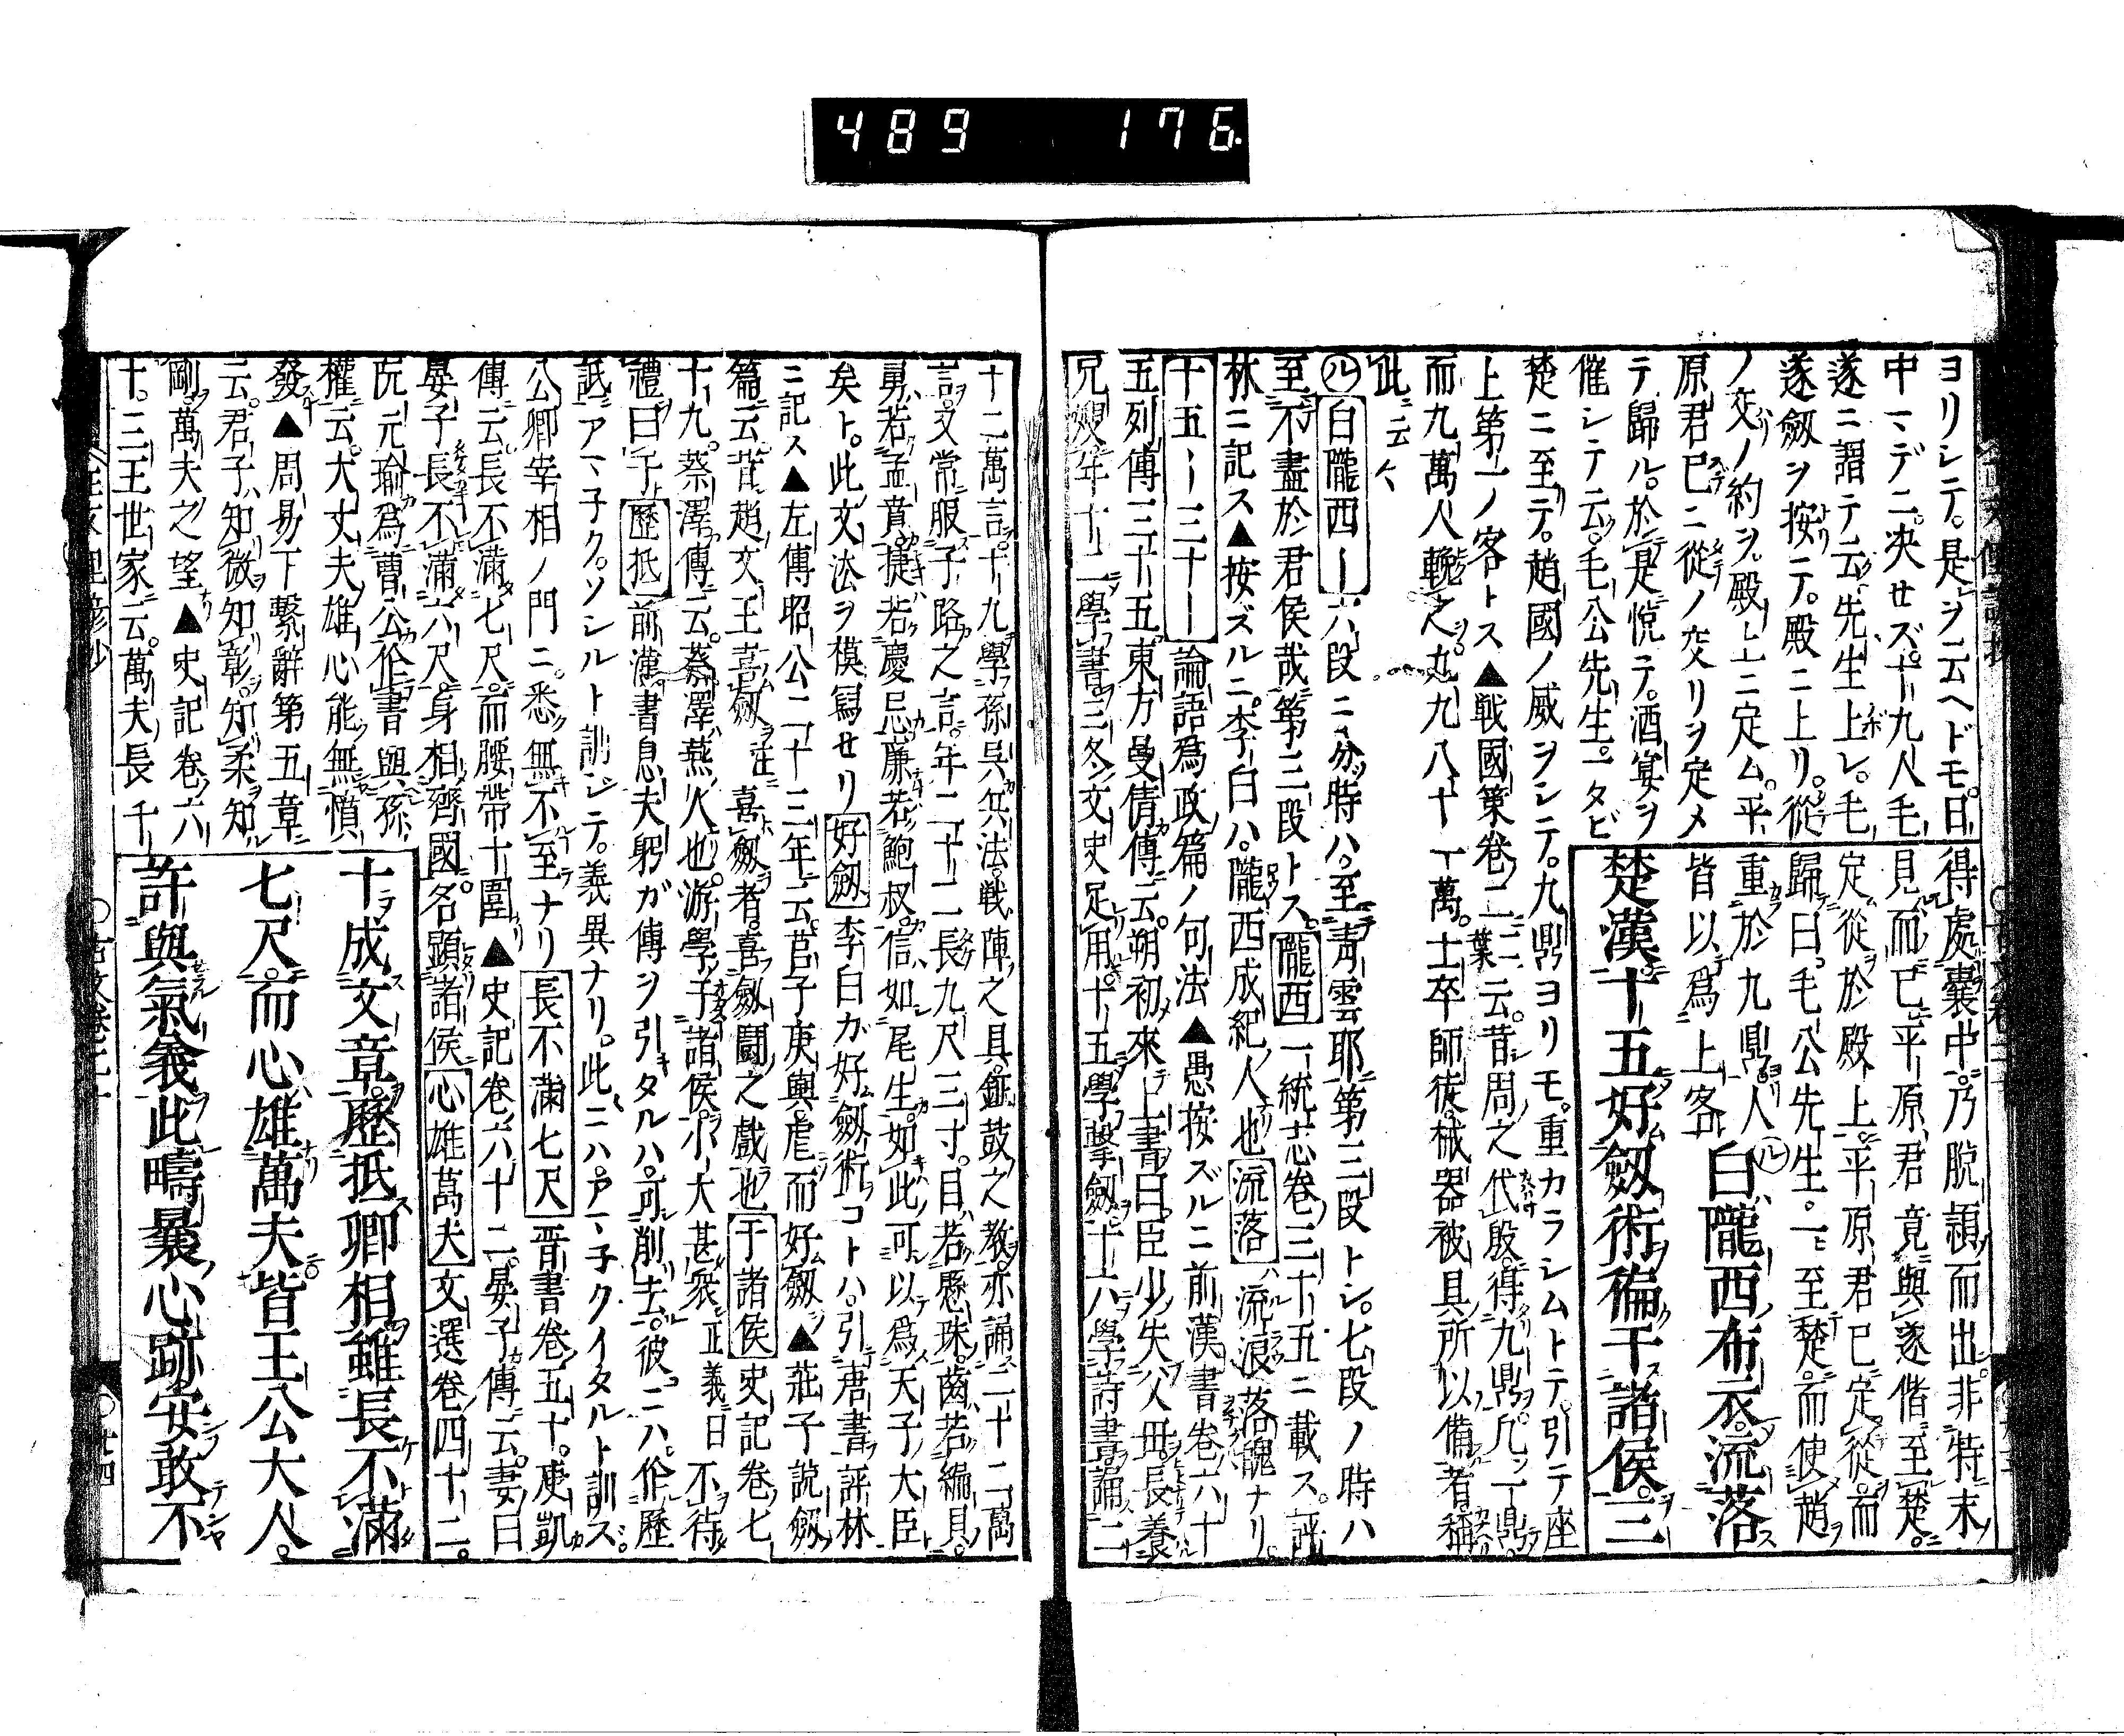 489 176
ヨリシテ。是ヲ云ヘドモ。日
中マデニ。決セズ。十九人毛
遂ニ謂テ云。先生上レ。毛
遂劔ヲ按テ。殿ニ上リ。從
ノ交ノ約ヲ。殿上ニ定ム。平
原君已ニ從ノ交リヲ定メ
テ歸ル。於是悅テ。酒宴ヲ
催シテ云。毛公先生。一タビ
得處囊中。乃脫穎而出。非特末
見而已。平原君竟與遂偕至楚。
定從於殿上。平原君已定從。而
歸曰。毛公先生。一至楚。而使趙
重於九鼎。人
皆以爲上客
白隴西布衣。流落
楚漢。十五好劔術。徧干諸侯。三
楚ニ至テ。趙國ノ威ヲシテ。九鼎ヨリモ。重カラシムトテ。引テ座
上第一ノ客トス▲戰國策卷二二葉云。昔周之代殷。得九鼎。凡一鼎。
而九萬人輓之。九九八十一萬。士卒師徒。械器被具。所以備者稱
此ニ云〻
㋸白隴西―六段ニ分時ハ。至靑雲耶。第三段トシ。七段ノ時ハ
至不盡於君侯哉。第三段トス。隴西一統志卷三十五ニ載ス。評
林ニ記ス▲按ズルニ。李白ハ。隴西成紀人也。流落流浪落魄ナリ。
十五―三十―論語爲政篇ノ句法▲愚按ズルニ前漢書卷六十
五列傳三十五東方曼倩傳云。朔初來上書曰。臣少失父母。長養
兄嫂。年十二學書。三冬文史足用。十五學擊劔。十六學詩書誦二
十二萬言。十九學孫吳兵法。戰陣之具。鉦鼓之敎。亦誦二十二萬
言。又常服子路之言。年二十二。長九尺三寸。目若懸珠。齒若編貝。
勇若孟賁。捷若慶忌。廉若鮑叔。信如尾生。如此可以爲天子大臣
矣ト。此文法ヲ模寫セリ好劔李白ガ好劔術コトハ。引唐書評林
ニ記ス▲左傳昭公二十三年云。莒子庚輿。虐而好劔▲莊子說劔
篇云。昔趙文王喜劔。註喜劔者。喜劔鬪之戲也于諸侯史記卷七
十九。蔡澤傳云。蔡澤燕人也。游學于諸侯。小大甚衆正義曰不待
禮曰干歷抵前漢書息夫躬ガ傳ヲ引タルハ。可削去。彼ニハ。作歷
詆アヽ子ク。ソシルト訓ジテ。義異ナリ。此ニハ。アヽ子クイタルト訓ズ。
公卿宰相ノ門ニ。悉無不至ナリ長不滿七尺晉書卷五十。庾凱
傳云。長不滿七尺。而腰帶十圍▲史記卷六十二。晏子傳云。妻曰
晏子長不滿六尺。身相齊國。名顯諸侯心雄萬夫文選卷四十二。
阮元瑜爲曹公作書與孫
權云。大丈夫雄心能無憤
發▲周易下繫辭第五章
云。君子知微知彰。知柔知
剛。萬夫之望▲史記卷六
十。三王世家云。萬夫長千
十成文章。歷抵卿相。雖長不滿
七尺。而心雄萬夫。皆王公大人。
許與氣義。此疇曩心跡。安敢不